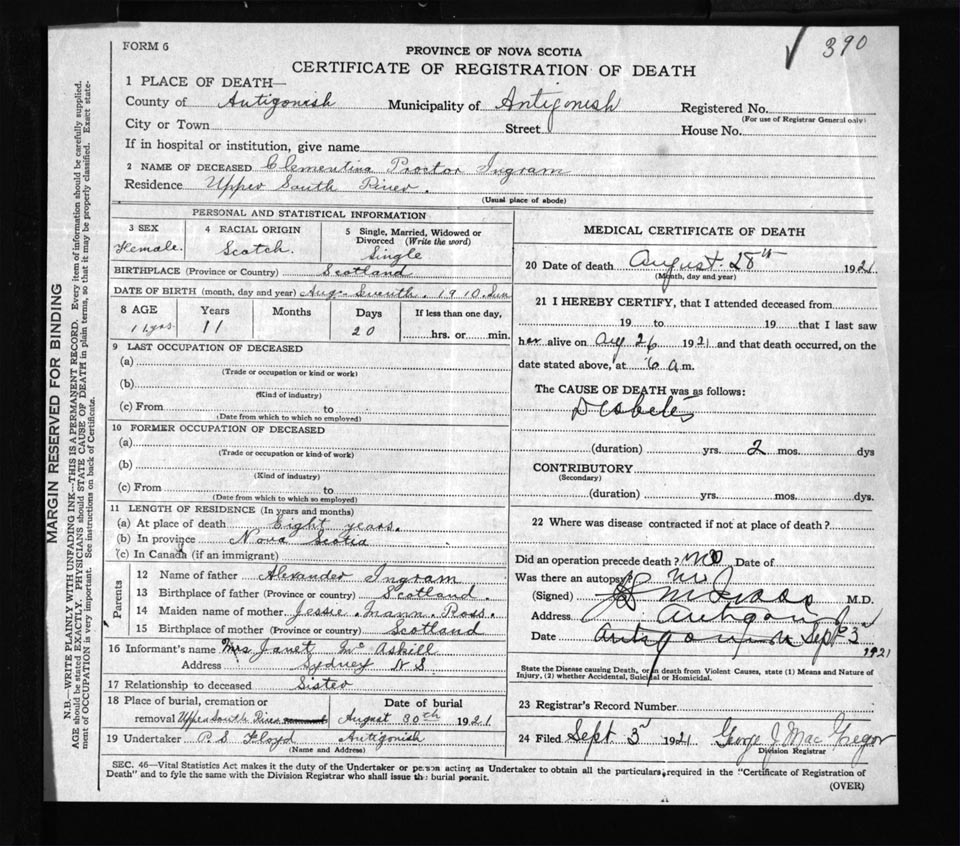 FORM 6
390
PROVINCE OF NOVA SCOTIA
CERTIFICATE OF REGISTRATION OF DEATH
1 PLACE OF DEATH—
County of Antigonish Municipality of Antigonish Registered No.
(For use of Registrar General only)
City or Town Street House No.
If in hospital or institution, give name
2 NAME OF DECEASED Clementina Proctor Ingram
Residence Upper South River.
(Usual place of abode)
PERSONAL AND STATISTICAL INFORMATION
3 SEX
Female.
4 RACIAL ORIGIN
Scotch.
5 Single, Married, Widowed or
Divorced (Write the word)
Single
BIRTHPLACE (Province or Country) Scotland
DATE OF BIRTH (month, day and year) Aug. Seventh. 1910. Sun
8 AGE Years Months Days If less than one day,
11 yrs. 11 20 hrs. or min.
9 LAST OCCUPATION OF DECEASED
(a)
(Trade or occupation or kind of work)
(b)
(Kind of industry)
(c) From to
(Date from which to which so employed)
10 FORMER OCCUPATION OF DECEASED
(a)
(Trade or occupation or kind of work)
(b)
(Kind of industry)
(c) From to
(Date from which to which so employed)
11 LENGTH OF RESIDENCE (In years and months)
(a) At place of death Eight years.
(b) In province Nova Scotia
(c) In Canada (if an immigrant)
Parents
12 Name of father Alexander Ingram
13 Birthplace of father (Province or country) Scotland.
14 Maiden name of mother Jessie Mann Ross.
15 Birthplace of mother (Province or country) Scotland
16 Informant's name Mrs Janet Mc Askill
Address Sydney N S.
17 Relationship to deceased Sister
18 Place of burial, cremation or
removal Upper South River
Date of burial
August 30th 1921
19 Undertaker P. S. Floyd Antigonish
(Name and Address)
MEDICAL CERTIFICATE OF DEATH
20 Date of death August. 28th 1921
(Month, day and year)
21 I HEREBY CERTIFY, that I attended deceased from
19 to 19 that I last saw
her alive on Aug 26 1921 and that death occurred, on the
date stated above, at 6 a.m.
The CAUSE OF DEATH was as follows:
Diabetes
(duration) yrs. 2 mos. dys
CONTRIBUTORY
(Secondary)
(duration) yrs. mos. dys.
22 Where was disease contracted if not at place of death?
Did an operation precede death? no Date of
Was there an autopsy? no
(Signed) M.D.
Address Antigonish
Date Antigonish Sept 3
1921
State the Disease causing Death, or in death from Violent Causes, state (1) Means and Nature of
Injury, (2) whether Accidental, Suicidal or Homicidal.
23 Registrar's Record Number
24 Filed Sept 3 1921 George J. Mac Gregor
Division Registrar
SEC. 46—Vital Statistics Act makes it the duty of the Undertaker or person acting as Undertaker to obtain all the particulars required in the "Certificate of Registration of
Death" and to fyle the same with the Division Registrar who shall issue the burial permit.
(OVER)
MARGIN RESERVED FOR BINDING
N.B.—WRITE PLAINLY WITH UNFADING INK—THIS IS A PERMANENT RECORD. Every item of information should be carefully supplied.
AGE should be stated EXACTLY. PHYSICIANS should STATE CAUSE OF DEATH in plain terms, so that it may be properly classified. Exact state-
ment of OCCUPATION is very important. See instructions on back of Certificate.